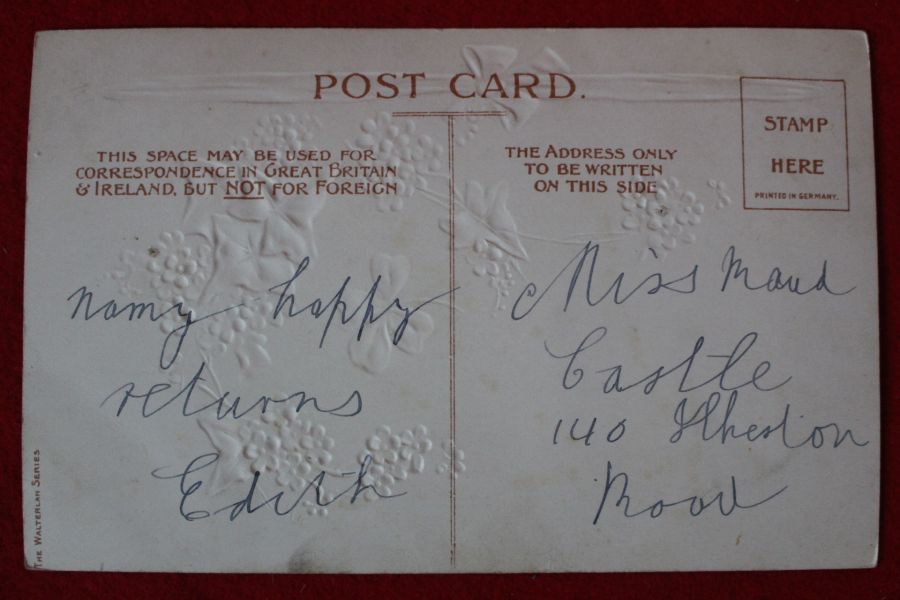 POST CARD.
THIS SPACE MAY BE USED FOR
CORRESPONDENCE IN GREAT BRITAIN
& IRELAND, BUT NOT FOR FOREIGN
THE ADDRESS ONLY
TO BE WRITTEN
ON THIS SIDE
STAMP
HERE
PRINTED IN GERMANY.
namy happy
returns
Edith
Miss Maud
Castle
140 Ilkeston
Road
THE WALTERLAN SERIES